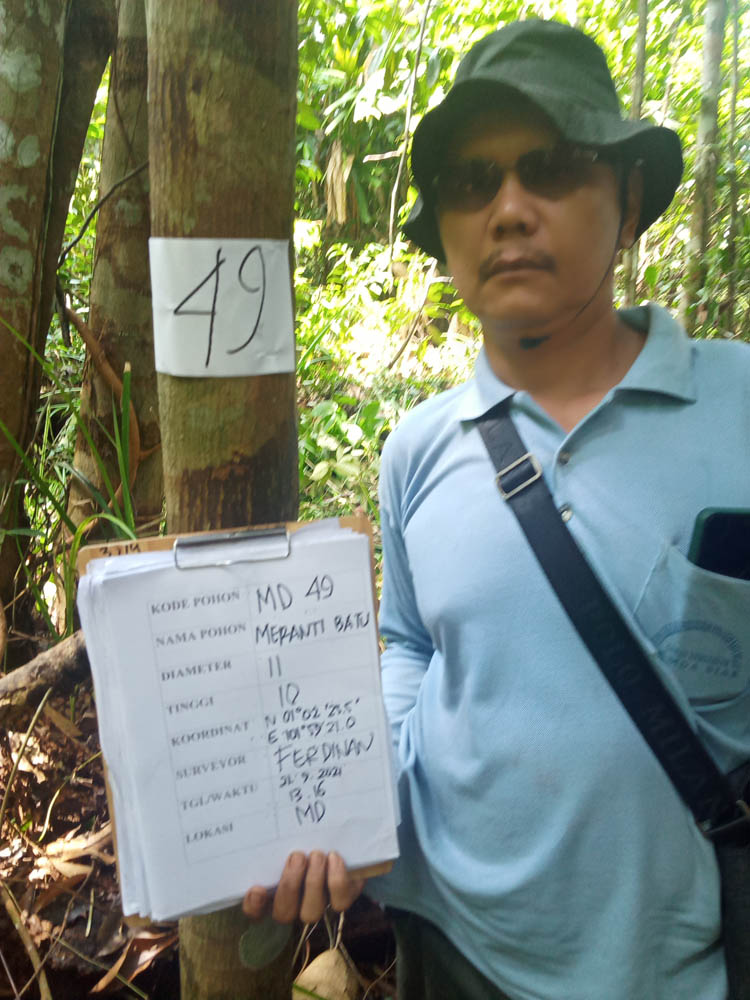 49
KODE POHON MD 49
NAMA POHON MERANTI BATU
DIAMETER 11
TINGGI 10
KOORDINAT N 01°02'23.5"
E 101°59'21.0
SURVEYOR FERDINAN
TGL/WAKTU 21.9.2021
13.16
LOKASI MD
POLO MILANO